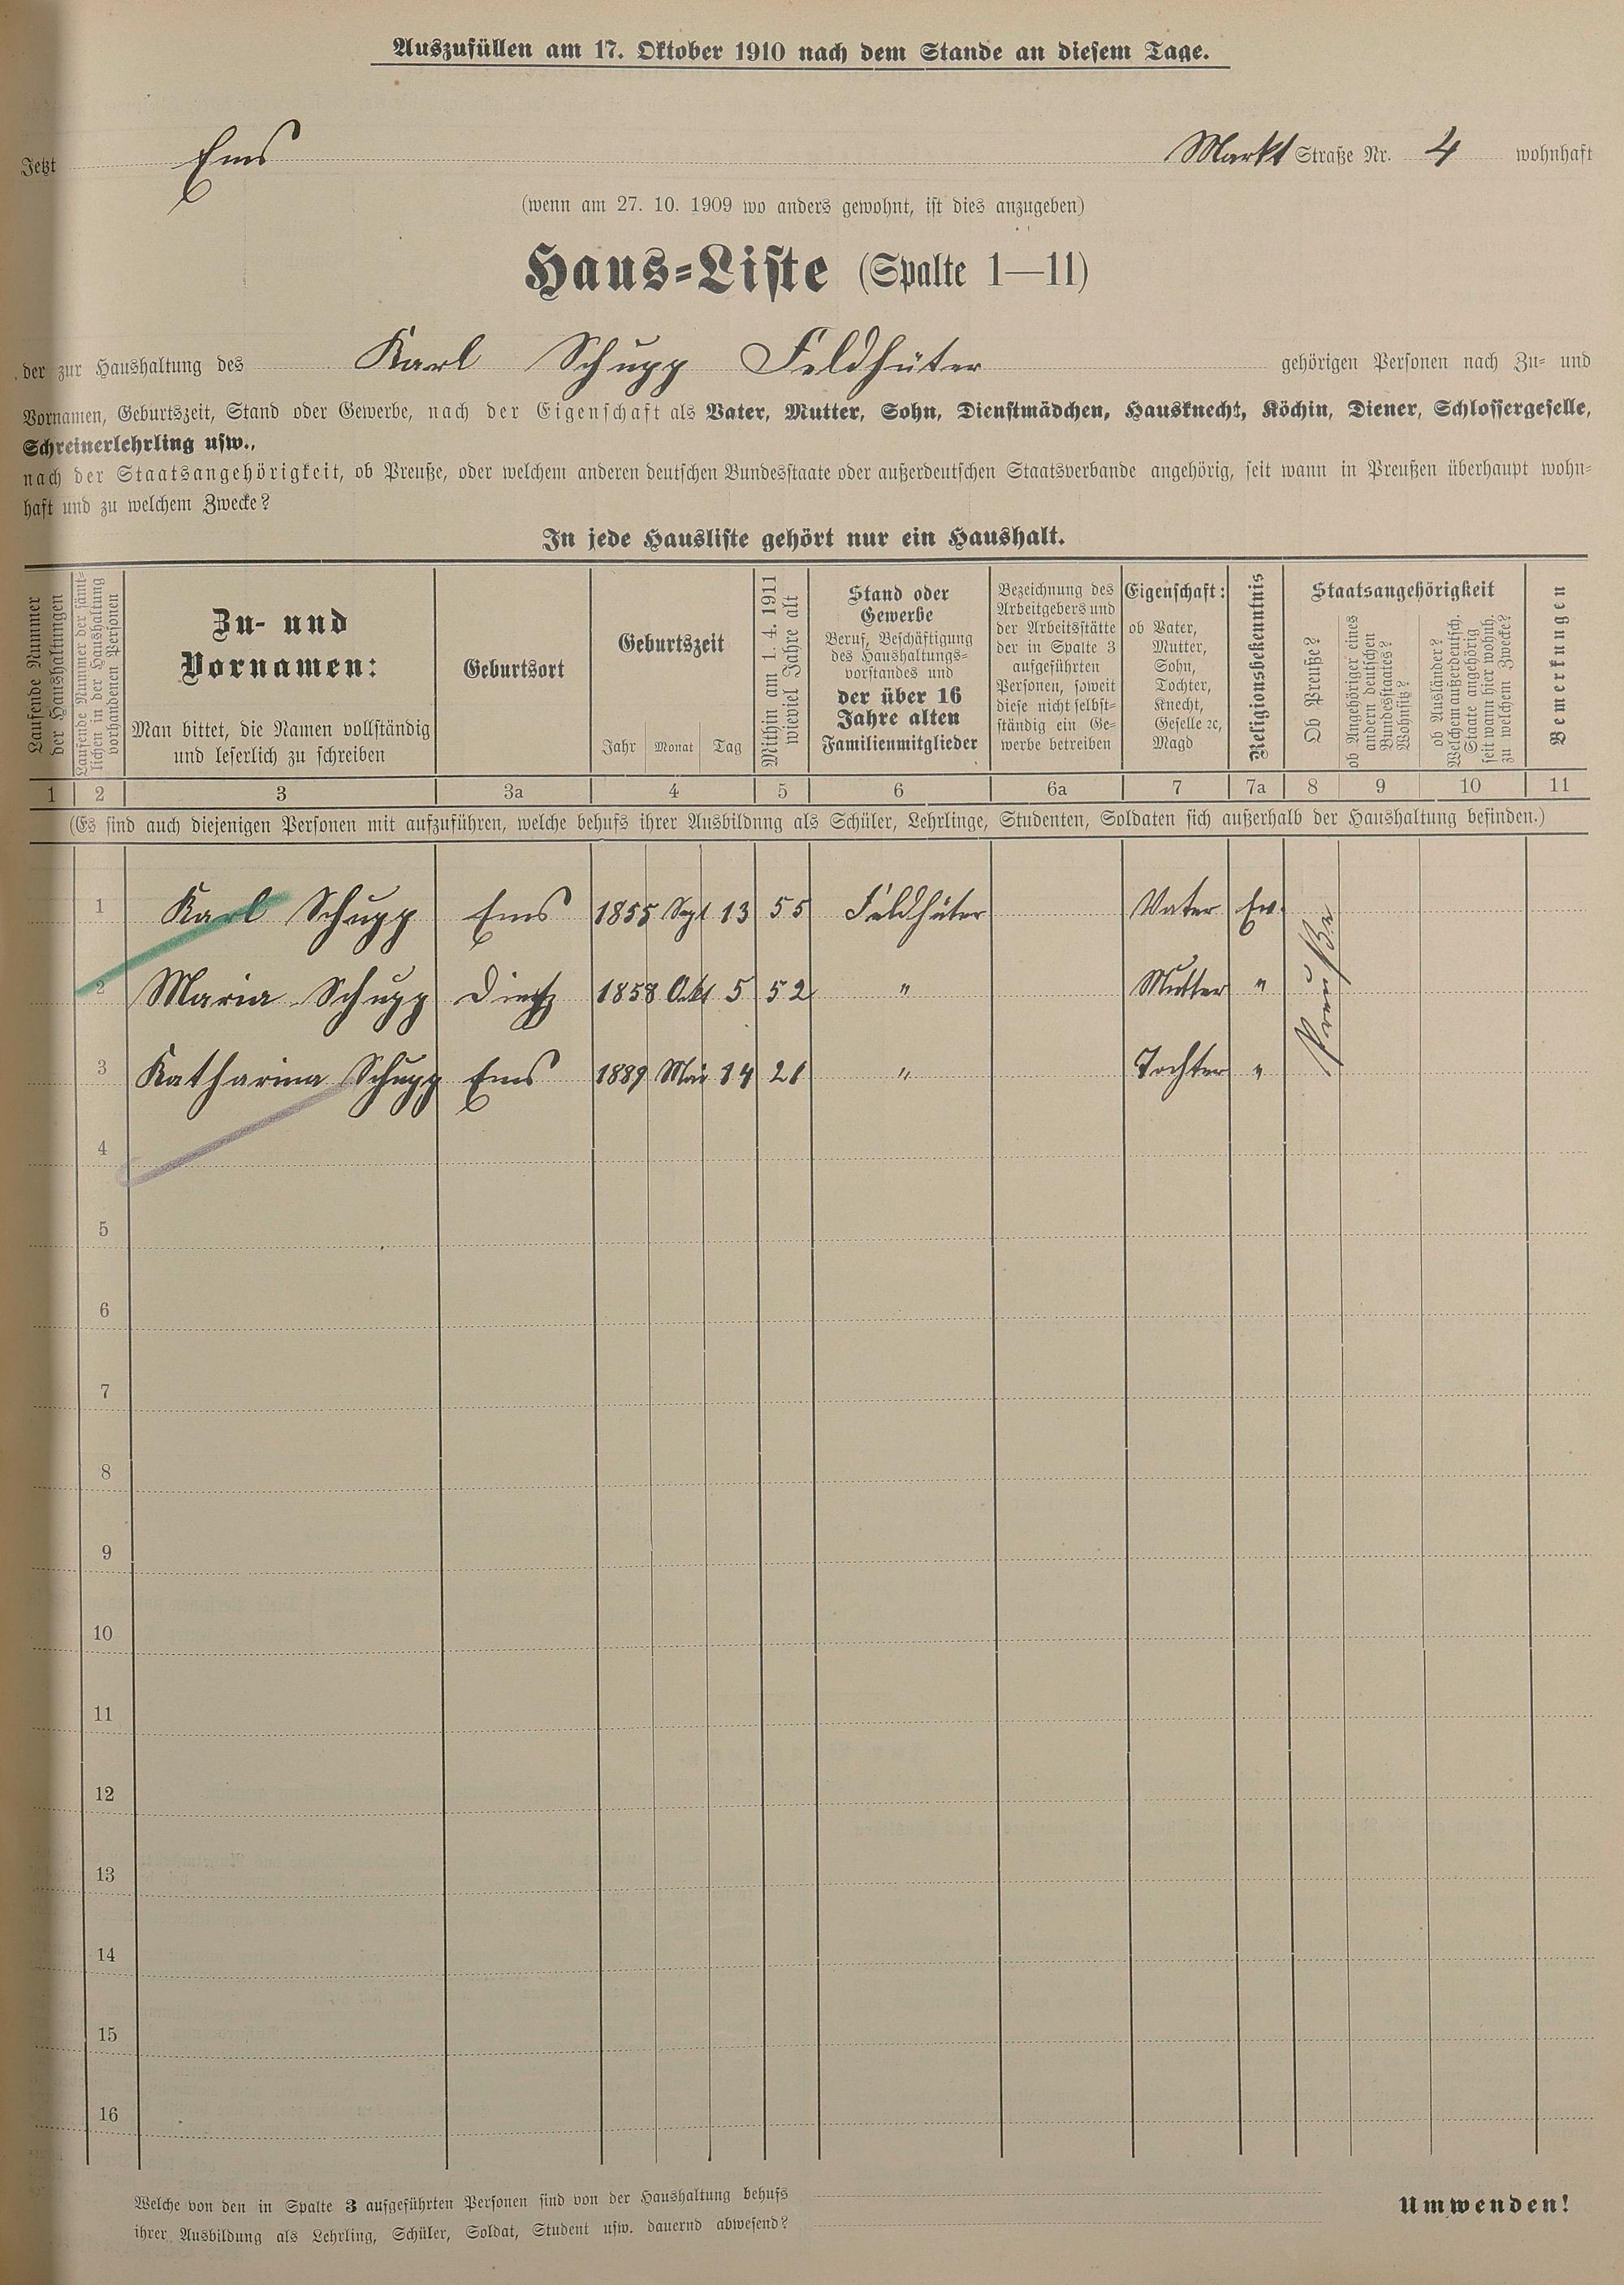 Auszufüllen am 17. Oktober 1910 nach dem Stande an diesem Tage.
Jetzt Ems Markt Straße Nr. 4 wohnhaft
(wenn am 27. 10. 1909 wo anders gewohnt, ist dies anzugeben)
Haus-Liste (Spalte 1—11)
der zur Haushaltung des Karl Schupp Feldhüter gehörigen Personen nach Zu- und
Vornamen, Geburtszeit, Stand oder Gewerbe, nach der Eigenschaft als Vater, Mutter, Sohn, Dienstmädchen, Hausknecht, Köchin, Diener, Schlossergeselle,
Schreinerlehrling usw.,
nach der Staatsangehörigkeit, ob Preuße, oder welchem anderen deutschen Bundesstaate oder außerdeutschen Staatsverbande angehörig, seit wann in Preußen überhaupt wohn-
haft und zu welchem Zwecke?
In jede Hausliste gehört nur ein Haushalt.
Laufende Nummer
der Haushaltungen
Laufende Nummer der sämt-
lichen in der Haushaltung
vorhandenen Personen
Zu- und
Vornamen:
Man bittet, die Namen vollständig
und leserlich zu schreiben
Geburtsort
Geburtszeit
Jahr Monat Tag
Mithin am 1. 4. 1911
wieviel Jahre alt
Stand oder
Gewerbe
Beruf, Beschäftigung
des Haushaltungs-
vorstandes und
der über 16
Jahre alten
Familienmitglieder
Bezeichnung des
Arbeitgebers und
der Arbeitsstätte
der in Spalte 3
aufgeführten
Personen, soweit
diese nicht selbst-
ständig ein Ge-
werbe betreiben
Eigenschaft:
ob Vater,
Mutter,
Sohn,
Tochter,
Knecht,
Geselle ꝛc,
Magd
Religionsbekenntnis
Staatsangehörigkeit
Ob Preuße?
ob Angehöriger eines
andern deutschen
Bundesstaates?
Wohnsitz?
ob Ausländer?
Welchem außerdeutsch.
Staate angehörig
seit wann hier wohnh.
zu welchem Zwecke?
Bemerkungen
1 2 3 3a 4 5 6 6a 7 7a 8 9 10 11
(Es sind auch diejenigen Personen mit aufzuführen, welche behufs ihrer Ausbildung als Schüler, Lehrlinge, Studenten, Soldaten sich außerhalb der Haushaltung befinden.)
1 Karl Schupp Ems 1855 Sept 13 55 Feldhüter Vater Ev.
Preuße
2 Maria Schupp 1858 Okt 5 52 " Mutter "
3 Katharina Schupp Ems 1889 Mai 14 21 " Tochter "
4
5
6
7
8
9
10
11
12
13
14
15
16
Welche von den in Spalte 3 aufgeführten Personen sind von der Haushaltung behufs
ihrer Ausbildung als Lehrling, Schüler, Soldat, Student usw. dauernd abwesend?
Umwenden!